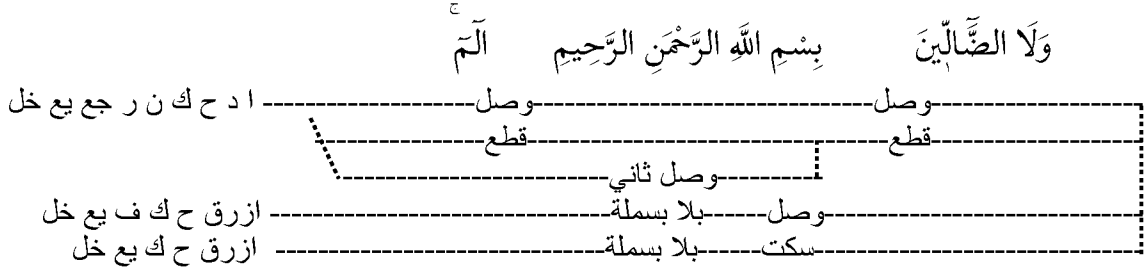 وَلَا الضَّآلِّينَ بِسْمِ اللَّهِ الرَّحْمَنِ الرَّحِيمِ الٓمٓ ۚ
وصل وصل ا د ح ك ن ر جع يع خل
قطع قطع
وصل ثاني
وصل بلا بسملة ازرق ح ك ف يع خل
سكت بلا بسملة ازرق ح ك يع خل